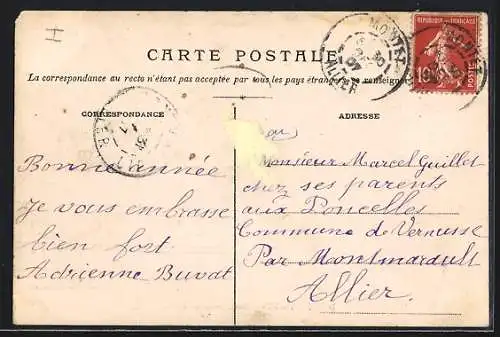 CARTE POSTALE
La correspondance au recto n'étant pas acceptée par tous les pays étrangers se renseigner
CORRESPONDANCE
ADRESSE
Bonne année
Je vous embrasse
bien fort
Adrienne Buvat
Monsieur Marcel Guillot
chez ses parents
aux Poncelles
Commune de Vernusse
Par Montmarault
Allier.
REPUBLIQUE FRANÇAISE
POSTES
10
MONTET
ALLIER